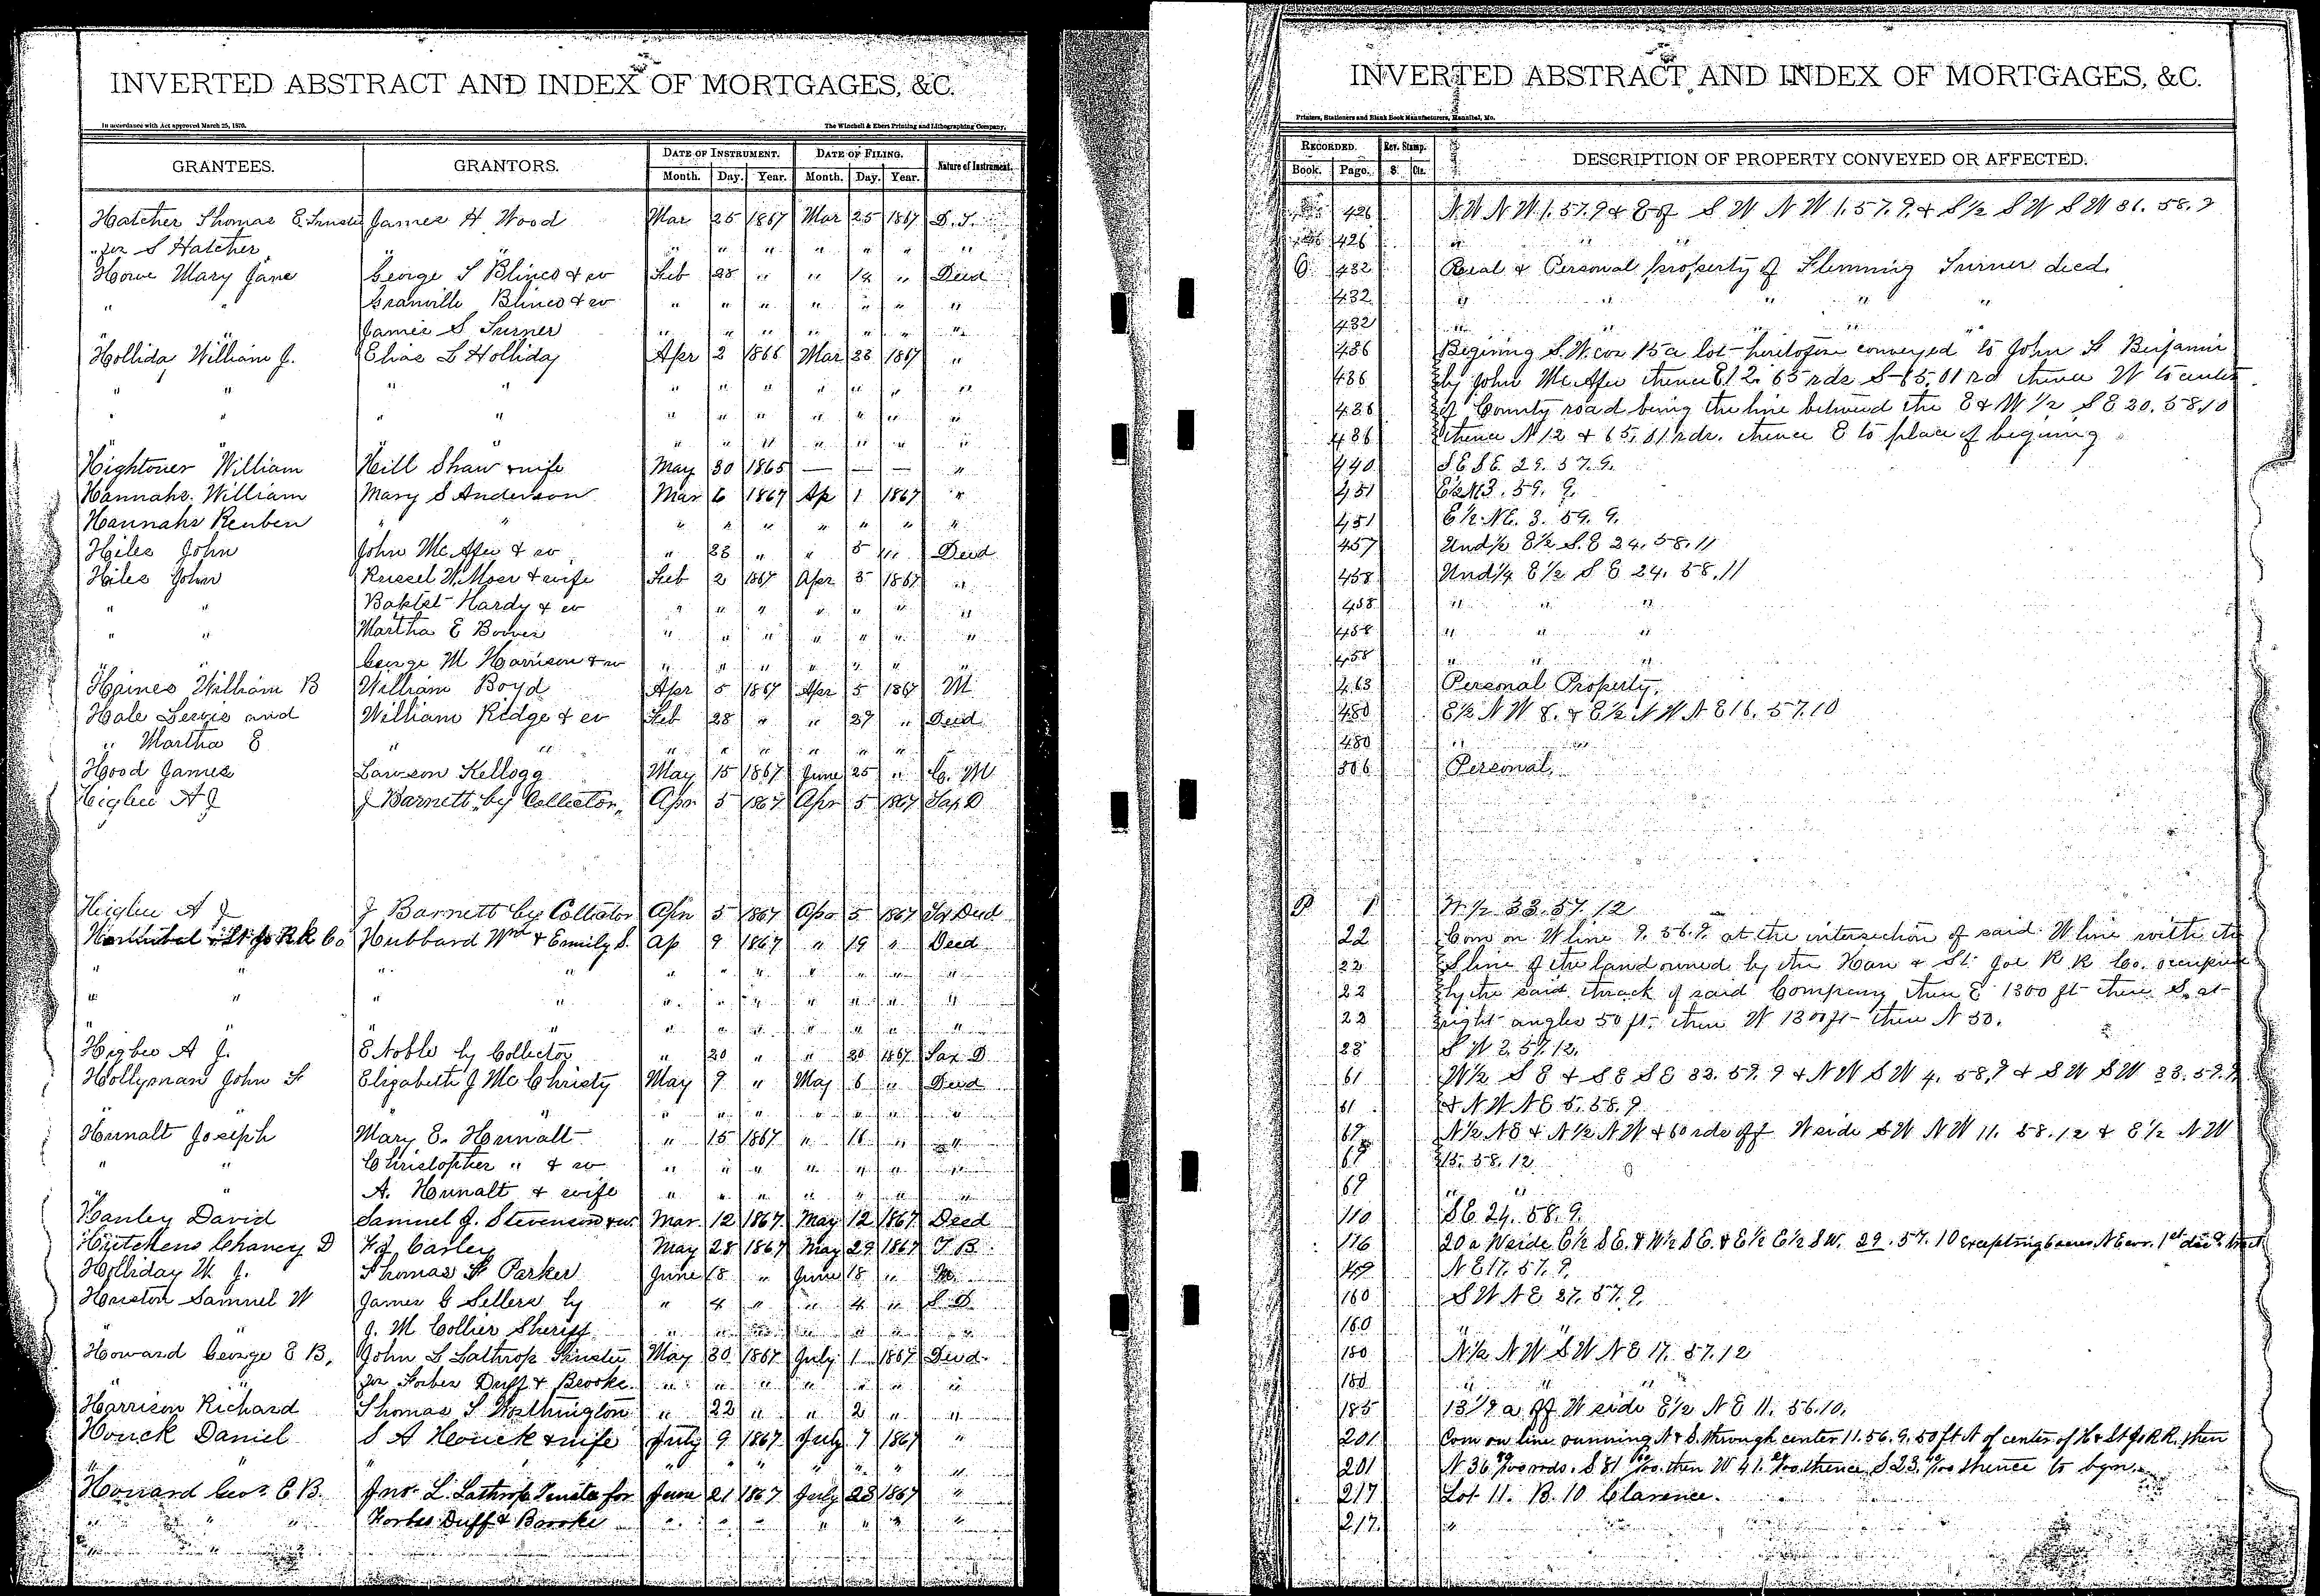 INVERTED ABSTRACT AND INDEX OF MORTGAGES, &C.
In accordance with Act approved March 25, 1870. The Winchell & Ebert Printing and Lithographing Company,
GRANTEES. GRANTORS. DATE OF INSTRUMENT. DATE OF FILING. Nature of Instrument.
Month. Day. Year. Month. Day. Year.
Hatcher Thomas E. Trustee James H Wood Mar 25 1867 Mar 25 1867 D. T.
" for S Hatcher " " " " " " " " "
Howe Mary Jane George S Blines & w Feb 28 " " 14 " Deed
" " Granville Blines & w " " " " " " "
" " James S Turner " " " " " " "
Hollida William J. Elias L Holliday Apr 2 1866 Mar 28 1867 "
" " " " " " " " " " "
" " " " " " " " " " "
" " " " " " " " "
Hightower William Hill Shaw & wife May 30 1865 — — — "
Hannahs William Mary S Anderson Mar 6 1867 Ap 1 1867 "
Hannahs Reuben " " " " " " " " "
Hiles John John McAfee & w " 28 " " 5 " Deed
Hiles John Russel W. Moss & wife Feb 2 1867 Apr 5 1867 "
" " Hardy & w " " " " " " "
" " Martha E " " " " " " "
" " George M Harrison & w " " " " " " "
Haines William B William Boyd Apr 5 1867 Apr 5 1867 M
Hale and William Ridge & w Feb 28 " " 27 " Deed
" Martha E " " " " " " " " "
Hood James Lawson Kellogg May 15 1867 June 25 " C. M
Higbee A J J Barnett by Collector Apr 5 1867 Apr 5 1867 Tax D
Higbee A J J Barnett by Collector Apr 5 1867 Apr 5 1867 Tax Deed
Hannibal & St Jo R R Co Hubbard Wm & Emily S. Ap 9 1867 " 19 " Deed
" " " " " " " " " " "
" " " " " " " " " " "
" " " " " " " " "
Higbee A J. E Noble by Collector " 20 " " 20 1867 Tax D
Hollyman John F Elizabeth J McChristy May 9 " May 6 " Deed
" " " " " " " " "
Hunalt Joseph Mary E. Hunalt " 15 1867 " 16 " "
" " Christopher " & w " " " " " " "
" " A. Hunalt & wife " " " " " " "
Hanley David Samuel J. Stevenson & w Mar 12 1867 May 12 1867 Deed
Hutchens Chancy D Carley May 28 1867 May 29 1867 T B
Holliday W J. Thomas F Parker June 18 " June 18 " M
Samuel W James C Sellers by " 4 " " 4 " S D
" " J. M Collier Sheriff " " " " " " "
Howard George E B, John L Lathrop Trustee May 30 1867 July 1 1867 Deed
" " for Forbes Duff & Brooke " " " " " " "
Harrison Richard Thomas S Worthington " 22 " " 2 " "
Houck Daniel S A Houck & wife July 9 1867 July 7 1867 "
" " " " " " " " "
Howard Geo. E B. Jno. L. Lathrop Trustee for June 21 1867 July 23 1867 "
" " " Forbes Duff & Brooke " " " " " " "
INVERTED ABSTRACT AND INDEX OF MORTGAGES, &C.
Printers, Stationers and Blank Book Manufacturers, Hannibal, Mo.
RECORDED. Rev. Stamp. DESCRIPTION OF PROPERTY CONVEYED OR AFFECTED.
Book. Page. $ Cts.
426 N.W N W 1. 57. 9 & E of S W N W 1. 57. 9. & S 1/2 S W S W 36. 58. 9
426 " " "
O 432 Real & Personal property of Flemming Turner decd.
432 " " " " "
432 " " " " "
436 Begining S. W. cor 15 a lot heretofore conveyed to John F Benjamin
436 by John McAfee thence E 12. 65 rds S 65. 01 rd thence W to center
436 of County road being the line between the E & W 1/2 S E 20. 58. 10
436 thence N 12 & 65. 61 rds. thence E to place of begining
440 S E S E. 29. 57. 9.
451 E 1/2 N E 3. 59. 9.
451 E 1/2 N E. 3. 59. 9.
457 Und 1/2 E 1/2 S. E 24. 58. 11
458 Und 1/4 E 1/2 S E 24. 58. 11
458 " " "
458 " " "
458 " " "
463 Personal Property.
480 E 1/2 N W 8. & E 1/2 N W N E 16. 57. 10
480 " "
506 Personal
P 1 N 1/2 33. 57. 12
22 Com on W line 9. 56. 9. at the intersection of said W line with the
22 S line of the land owned by the Han & St. Joe R R Co. occupied
22 by the said track of said Company then E 1300 ft then S. at
22 right angles 50 ft. then W 1300 ft then N 50.
28 S W 2. 57. 12.
61 W 1/2 S E & S E S E 33. 59. 9 & N W S W 4. 58. 9 & S W S W 33. 59. 9
61 & N W N E 5. 58. 9
69 N 1/2 N E & N 1/2 N W & 60 rds off W side S W N W 11. 58. 12 & E 1/2 N W
69 15. 58. 12
69 " "
110 S E 24. 58. 9.
116 20 a W side E 1/2 S E. & W 1/2 S E. & E 1/2 E 1/2 S W. 29. 57. 10 excepting 6 acres N E cor. 1st decd. tract
149 N E 17. 57. 9.
160 S W N E 27. 57. 9.
160 " "
180 N 1/2 N W S W N E 17. 57. 12
180 " " "
185 13 1/9 a off W side E 1/2 N E 11. 56. 10.
201 Com on line running N & S. through center 11. 56. 9. 50 ft N of center of H & St Jo R R. then
201 N 36 rods. S. 81 then W 41. thence S. 23. thence to bgn.
217 Lot 11. B. 10 Clarence.
217 "